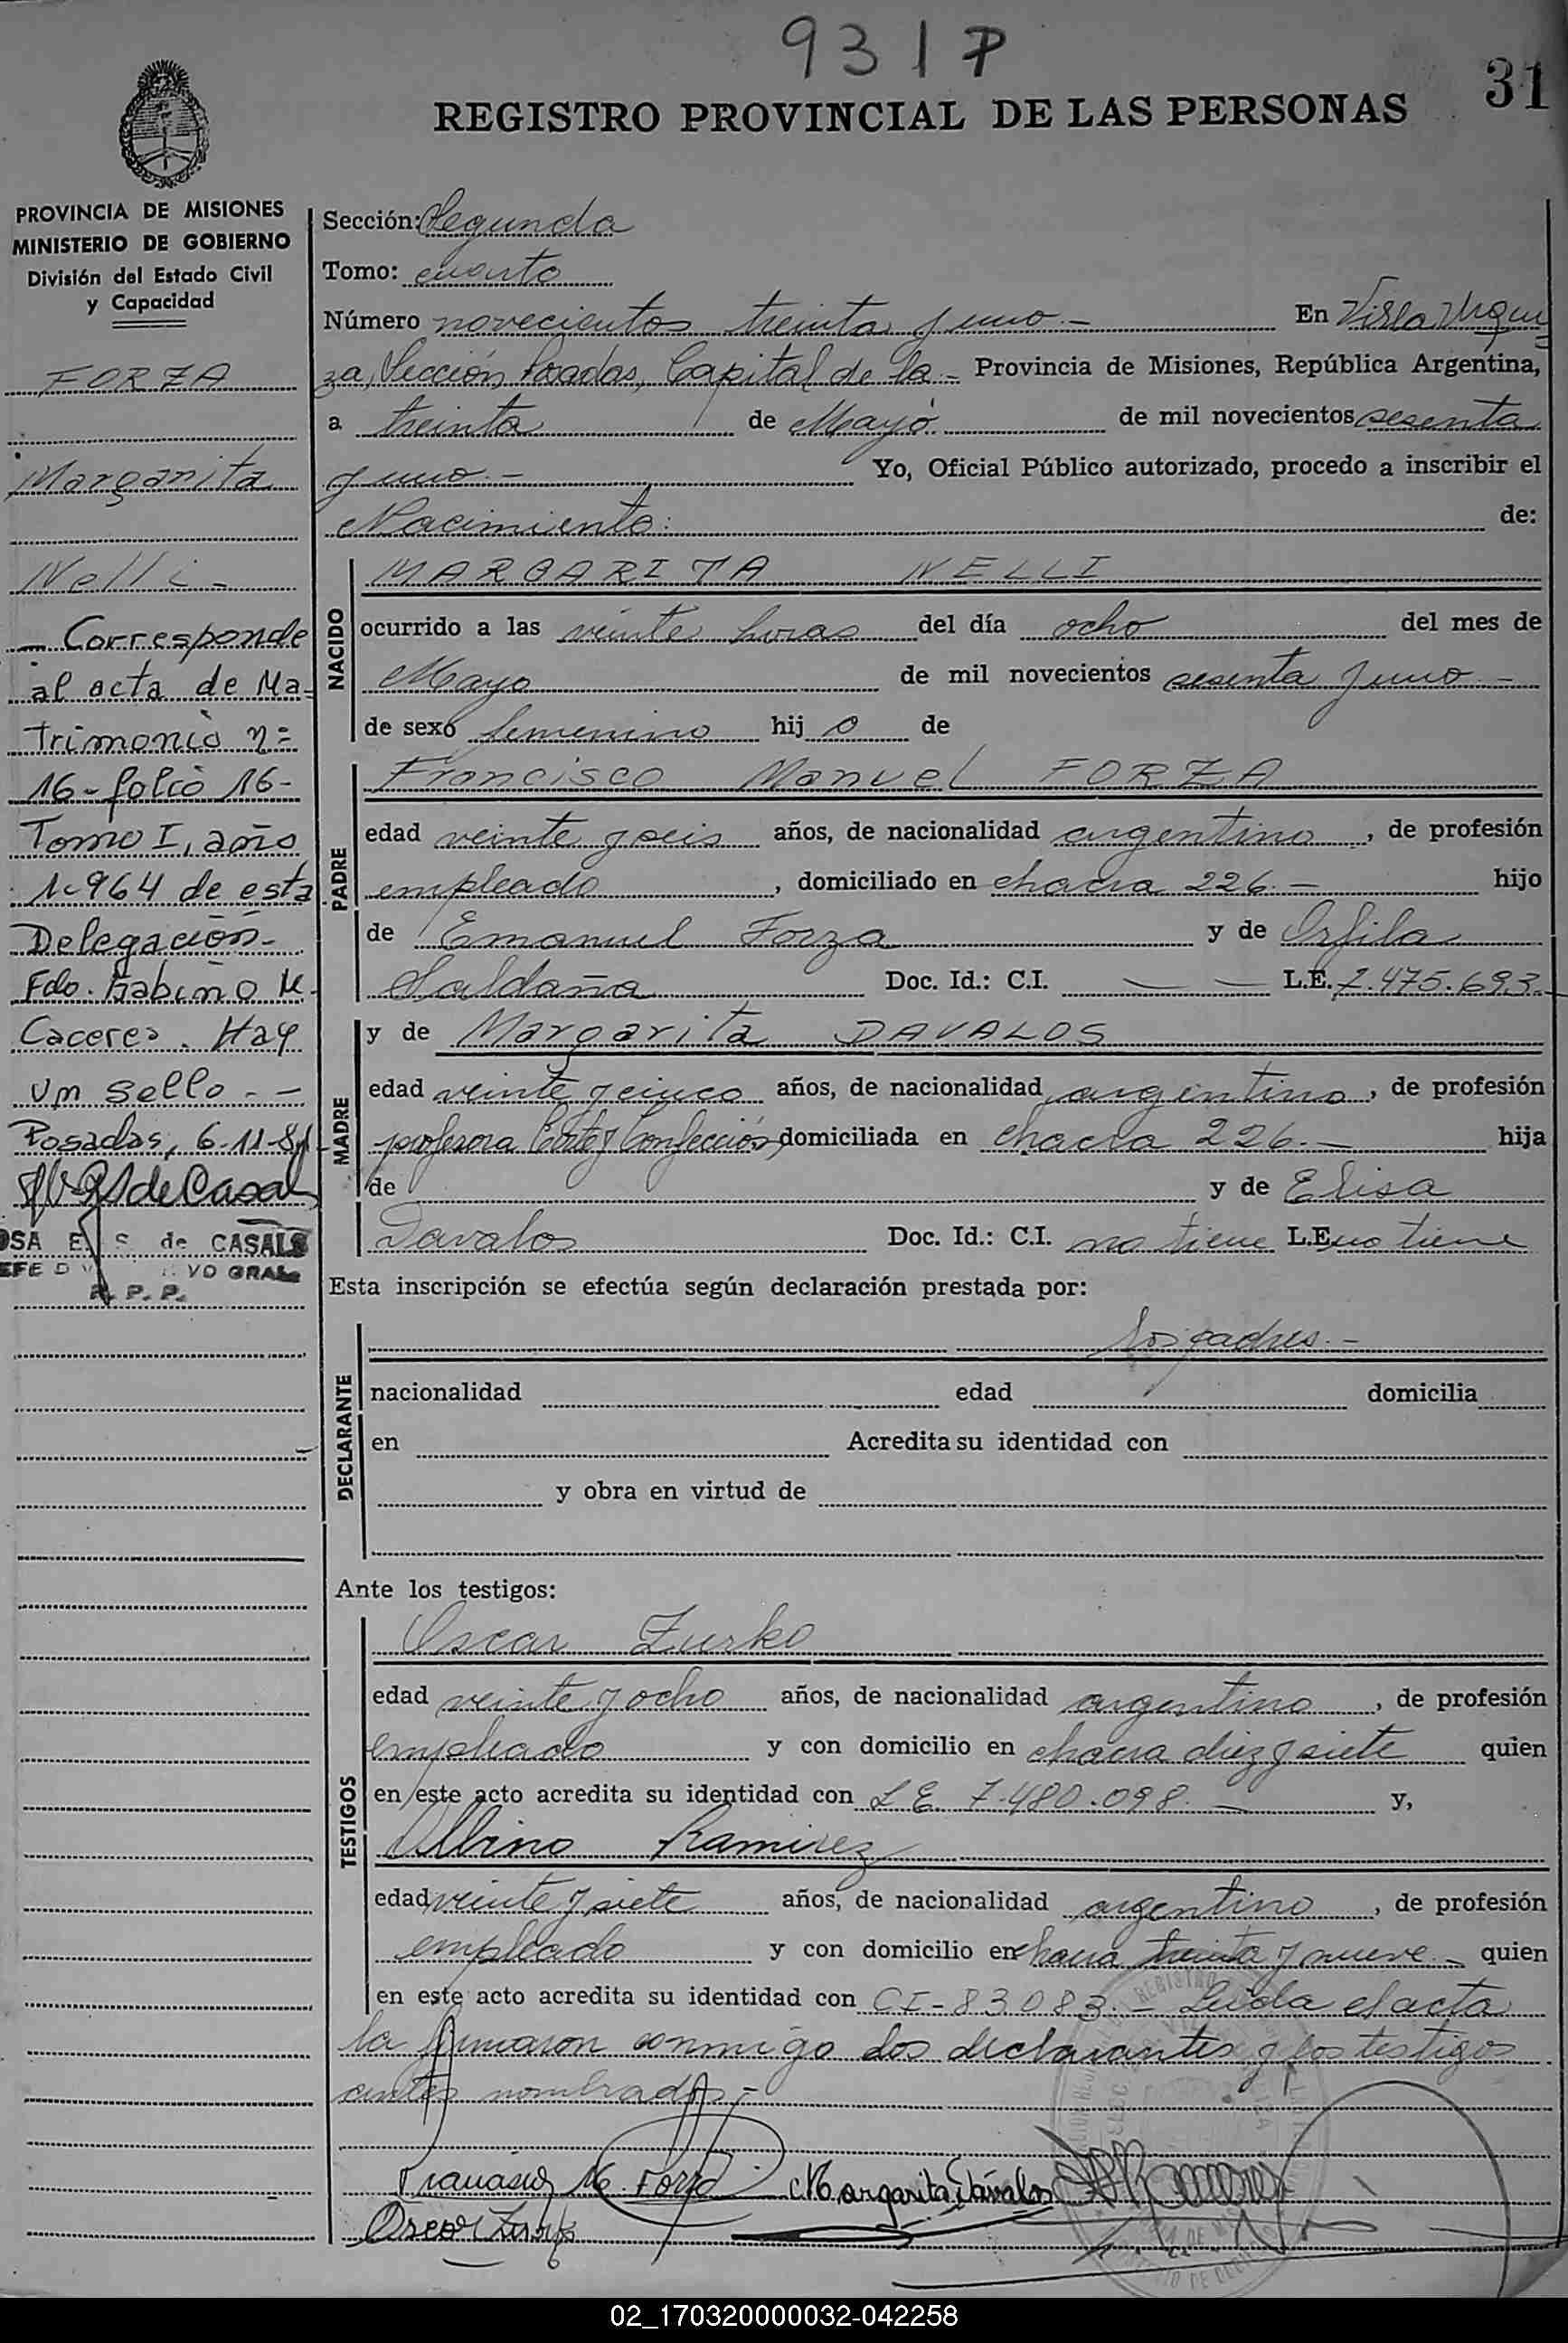 931 P
31
REGISTRO PROVINCIAL DE LAS PERSONAS
PROVINCIA DE MISIONES
MINISTERIO DE GOBIERNO
División del Estado Civil
y Capacidad
FORZA
Margarita
Nelli -
- Corresponde
al acta de Ma-
trimonio nº
16 - folio 16 -
Tomo I, año
1.964 de esta
Delegación -
Fdo. Gabino M.
Caceres. Hay
un sello - -
Posadas, 6-11-81
de CASALS
R. P. P.
Sección: Segunda
Tomo: cuarto
Número novecientos treinta y uno.- En Villa Urqui
za, Sección Posadas, Capital de la - Provincia de Misiones, República Argentina,
a treinta de Mayo de mil novecientos sesenta
y uno.- Yo, Oficial Público autorizado, procedo a inscribir el
Nacimiento de:
NACIDO
MARGARITA NELLI
ocurrido a las veinte horas del día ocho del mes de
Mayo de mil novecientos sesenta y uno -
de sexo femenino hij o de
PADRE
Francisco Manuel FORZA
edad veinte y seis años, de nacionalidad argentina, de profesión
empleado, domiciliado en chacra 226.- hijo
de Emanuel Forza y de Orfila
Saldaña Doc. Id.: C.I. — — L.E. 7.475.693.-
MADRE
y de Margarita DAVALOS
edad veinte y cinco años, de nacionalidad argentina, de profesión
profesora Corte y Confección domiciliada en chacra 226.- hija
de y de Elisa
Davalos Doc. Id.: C.I. no tiene L.E. no tiene
Esta inscripción se efectúa según declaración prestada por:
DECLARANTE
los padres.-
nacionalidad edad domicilia
en Acredita su identidad con
y obra en virtud de
Ante los testigos:
TESTIGOS
Oscar Zurko
edad veinte y ocho años, de nacionalidad argentino, de profesión
empleado y con domicilio en chacra diez y siete quien
en este acto acredita su identidad con L E 7.480.098. - y,
Albino Ramirez
edad veinte y siete años, de nacionalidad argentino, de profesión
empleado y con domicilio en chacra treinta y nueve - quien
en este acto acredita su identidad con CI - 83083.- Leida el acta
la firmaron conmigo los declarantes y los testigos
antes nombrados.-
Francisco M. Forza Margarita Dávalos
Oscar Zurko
02_170320000032-042258